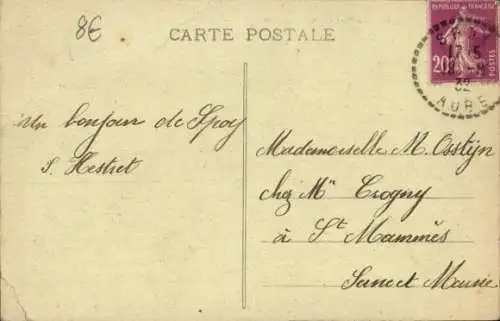 8€
CARTE POSTALE
REPUBLIQUE FRANÇAISE
20
POSTES
17-5
32
AUBE
Un bonjour de Spoy
S. Hestret
Mademoiselle M. Osstyn
chez Mʳ Crogny
à Sᵗ Mammès
Seine et Marne